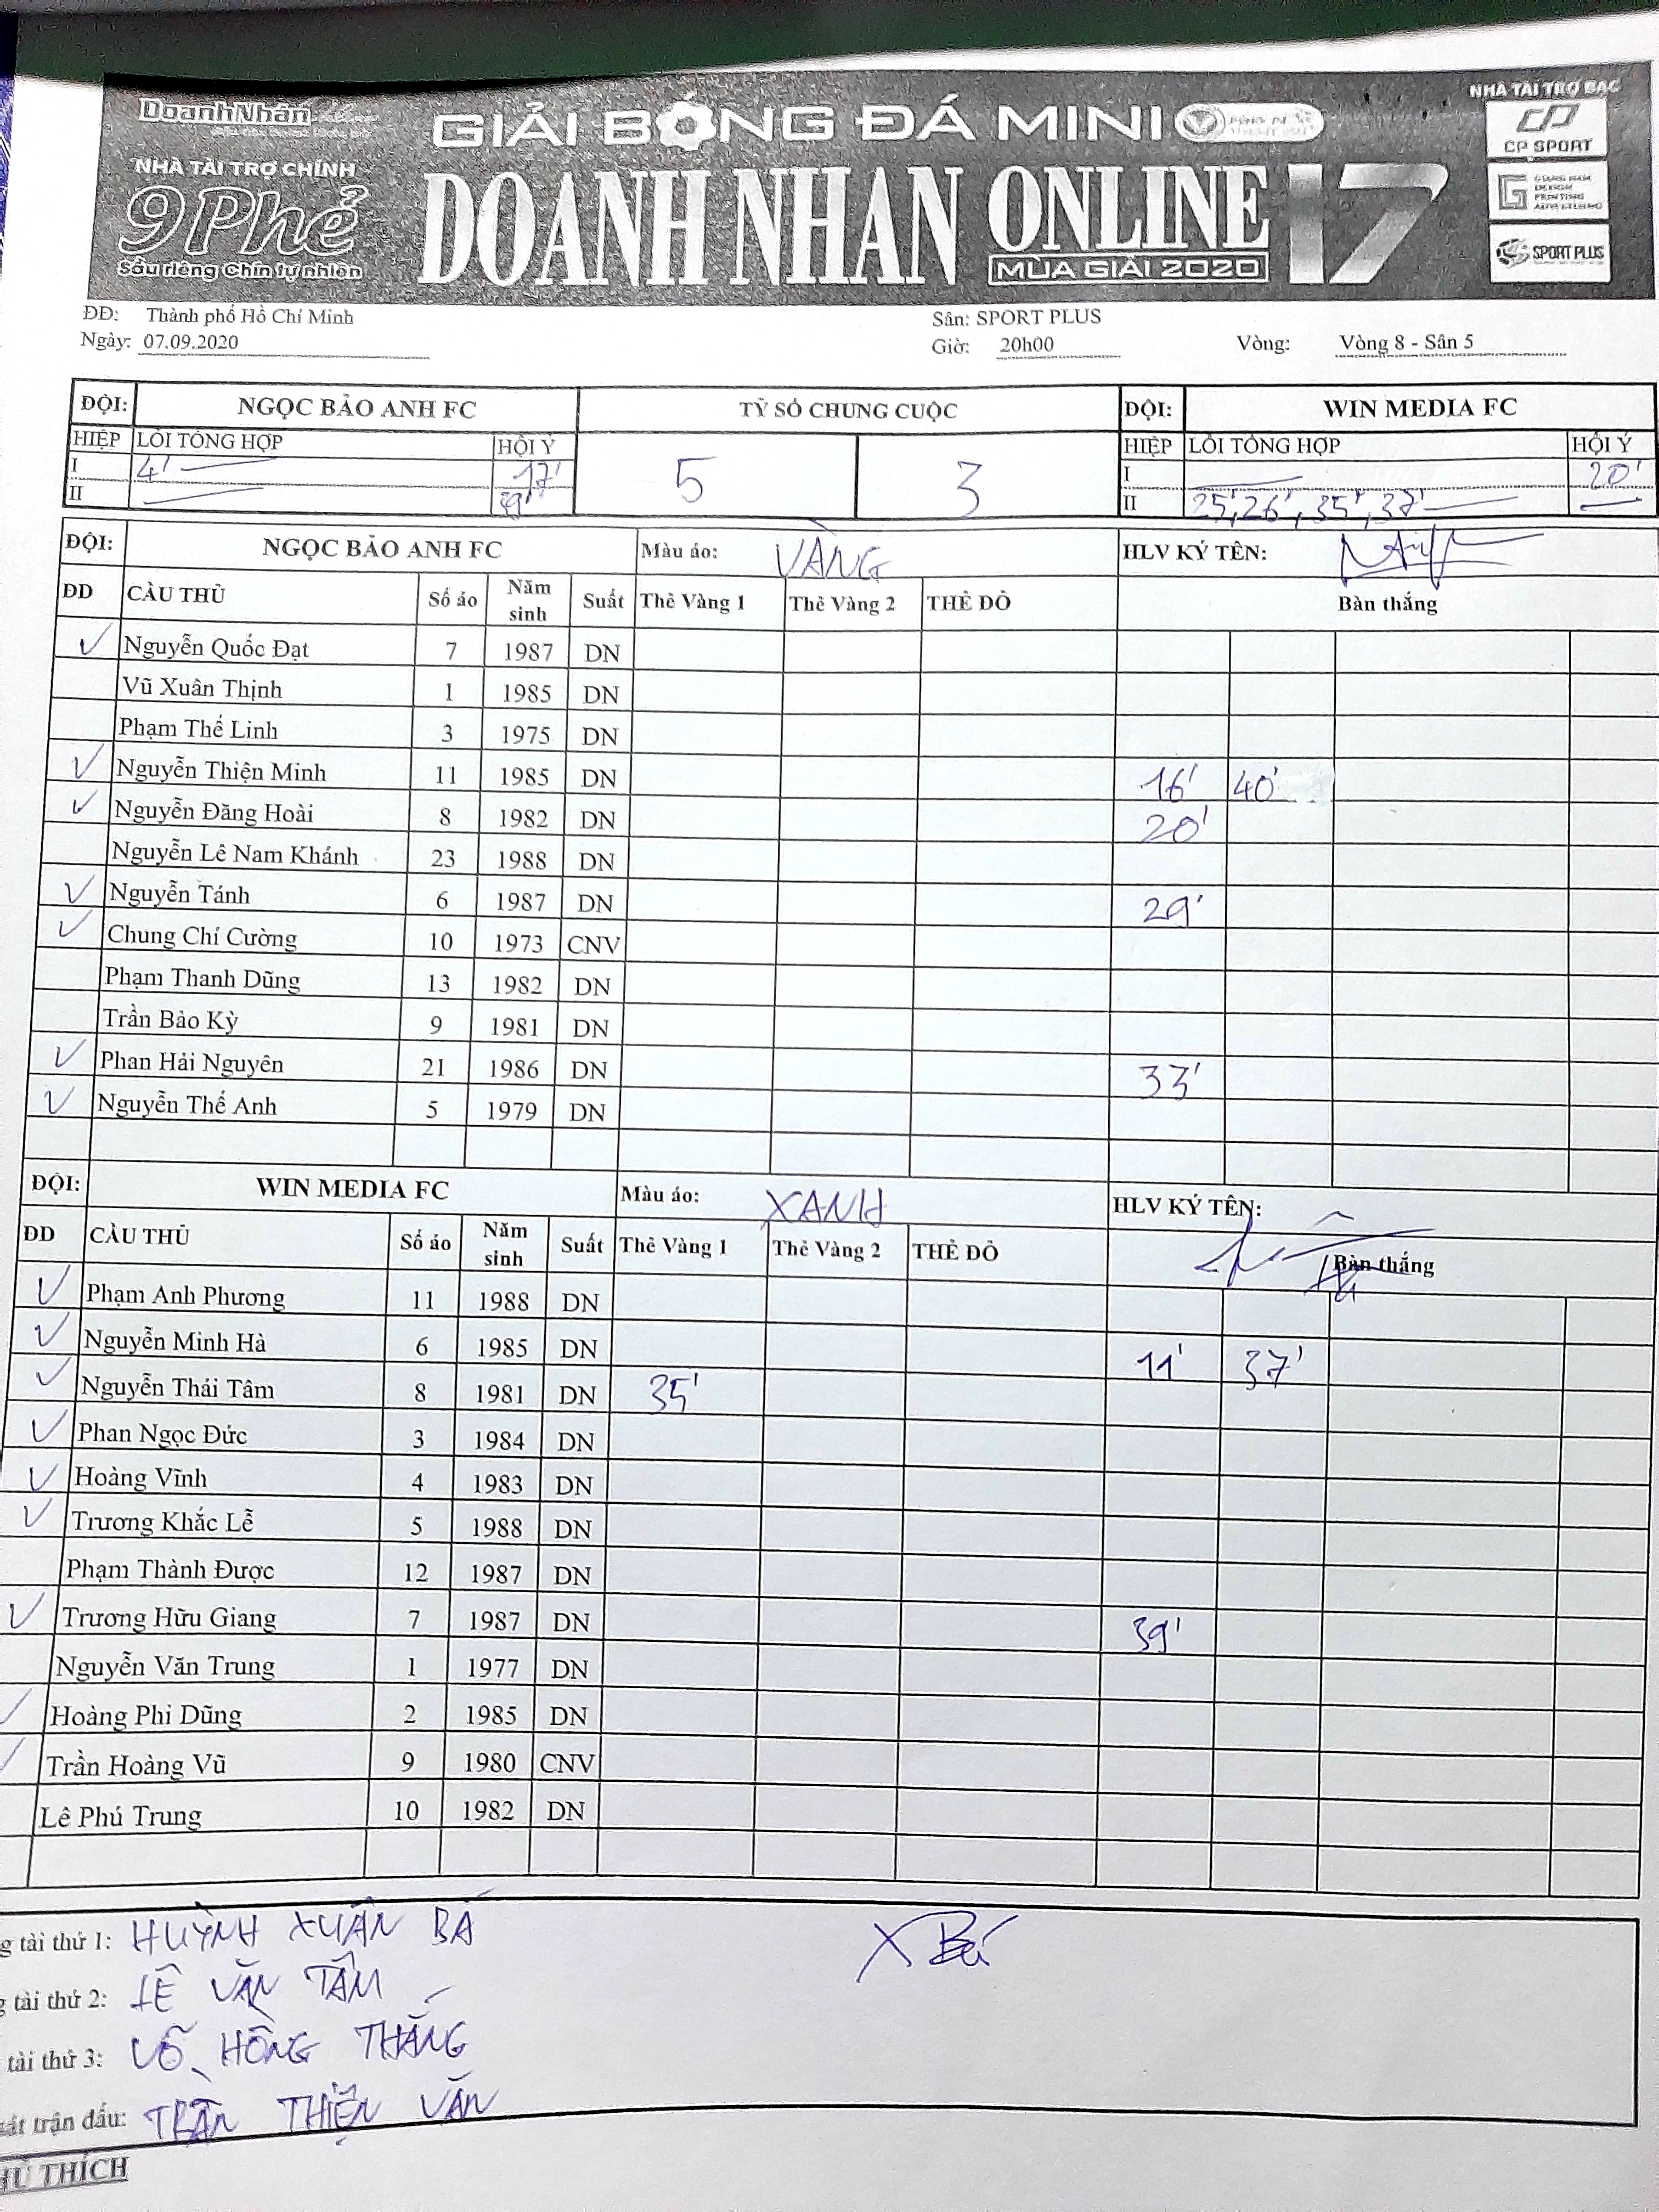 DoanhNhân
NHÀ TÀI TRỢ CHÍNH
9Phẻ
Sầu riêng Chín tự nhiên
GIẢI BÓNG ĐÁ MINI
DOANH NHÂN ONLINE 17
MÙA GIẢI 2020
NHÀ TÀI TRỢ BẠC
CP SPORT
SPORT PLUS
ĐĐ: Thành phố Hồ Chí Minh Sân: SPORT PLUS
Ngày: 07.09.2020 Giờ: 20h00 Vòng: Vòng 8 - Sân 5
ĐỘI: NGỌC BẢO ANH FC TỶ SỐ CHUNG CUỘC ĐỘI: WIN MEDIA FC
HIỆP LỖI TỔNG HỢP HỘI Ý 5 3 HIỆP LỖI TỔNG HỢP HỘI Ý
I 4' 17' I 20'
II II 25', 26', 35', 37'
ĐỘI: NGỌC BẢO ANH FC Màu áo: VÀNG HLV KÝ TÊN:
ĐD CẦU THỦ Số áo Năm sinh Suất Thẻ Vàng 1 Thẻ Vàng 2 THẺ ĐỎ Bàn thắng
Nguyễn Quốc Đạt 7 1987 DN
Vũ Xuân Thịnh 1 1985 DN
Phạm Thế Linh 3 1975 DN
Nguyễn Thiện Minh 11 1985 DN 16' 40'
Nguyễn Đăng Hoài 8 1982 DN 20'
Nguyễn Lê Nam Khánh 23 1988 DN
Nguyễn Tánh 6 1987 DN 29'
Chung Chí Cường 10 1973 CNV
Phạm Thanh Dũng 13 1982 DN
Trần Bảo Kỳ 9 1981 DN
Phan Hải Nguyên 21 1986 DN 33'
Nguyễn Thế Anh 5 1979 DN
ĐỘI: WIN MEDIA FC Màu áo: XANH HLV KÝ TÊN:
ĐD CẦU THỦ Số áo Năm sinh Suất Thẻ Vàng 1 Thẻ Vàng 2 THẺ ĐỎ Bàn thắng
Phạm Anh Phương 11 1988 DN
Nguyễn Minh Hà 6 1985 DN 11' 37'
Nguyễn Thái Tâm 8 1981 DN 35'
Phan Ngọc Đức 3 1984 DN
Hoàng Vĩnh 4 1983 DN
Trương Khắc Lễ 5 1988 DN
Phạm Thành Được 12 1987 DN
Trương Hữu Giang 7 1987 DN 39'
Nguyễn Văn Trung 1 1977 DN
Hoàng Phi Dũng 2 1985 DN
Trần Hoàng Vũ 9 1980 CNV
Lê Phú Trung 10 1982 DN
g tài thứ 1: HUỲNH XUÂN BÁ X Bá
g tài thứ 2: LÊ VĂN TÂM
tài thứ 3: VÕ HỒNG THẮNG
sát trận đấu: TRẦN THIỆN VĂN
HÚ THÍCH